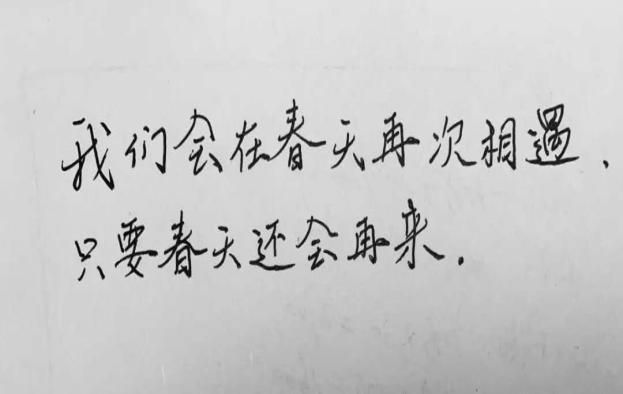 我们会在春天再次相遇.
只要春天还会再来.